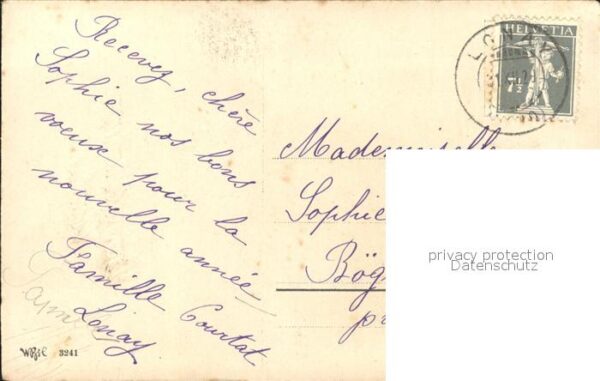 Recevez, chère
Sophie nos bons
voeux pour la
nouvelle année
Famille Courtat
Lonay
3241
HELVETIA
7½
LONAY
Mademoiselle
Sophie
Bög
pr
privacy protection
Datenschutz